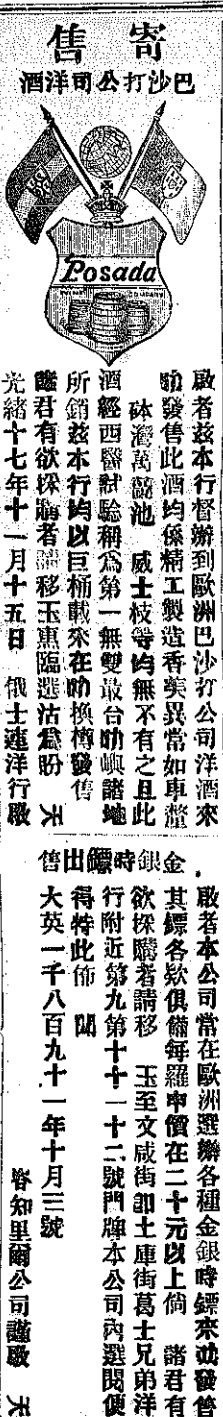 寄售
巴沙打公司洋酒
Posada
啟者茲本行督辦到歐洲巴沙打公司洋酒來
叻發售此酒均係精工製造香美異常如車釐
砵灣萬 池 威士枝等均無不有之且此
酒經西醫試驗稱為第一無雙最合叻嶼諸地
所銷茲本行均以巨桶載來在叻換樽發售
諸君有欲採購者請移玉惠臨選沽為盼 天
光緒十七年十一月十五日 俄士連洋行啟
金銀時鏢出售
啟者本公司常在歐洲選辦各種金銀時鏢來叻發售
其鏢各欵俱備每羅申價在二十元以上倘 諸君有
欲採購者請移 玉至文咸街卽土庫街葛士兄弟洋
行附近第九第十十一十二號門牌本公司內選閱便
得特此佈 聞
大英一千八百九十一年十月三號
 知里爾公司謹啟 天